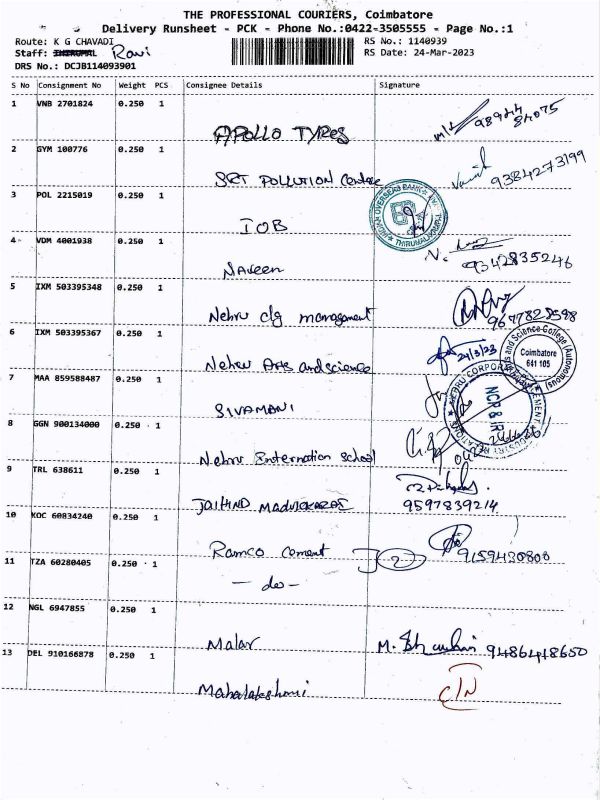 THE PROFESSIONAL COURIERS, Coimbatore
Delivery Runsheet - PCK - Phone No.:0422-3505555 - Page No.:1
Route: K G CHAVADI
RS No.: 1140939
Staff: Ravi
RS Date: 24-Mar-2023
DRS No.: DCJB114093901
S No Consignment No Weight PCS Consignee Details Signature
1 VNB 2701824 0.250 1
APOLLO TYRES
2 GYM 100776 0.250 1
SGT POLLUTION Centre 9384273199
3 POL 2215019 0.250 1
IOB
INDIAN OVERSEAS BANK
THIRUMALAYAMPALAYAM
4 VDM 4001938 0.250 1
Naveen 9342835246
5 IXM 503395348 0.250 1
Nehru clg management 9677828598
6 IXM 503395367 0.250 1
Nehru Arts and science 24/3/23
Arts and Science College (Autonomous)
Coimbatore
641 105
7 MAA 859588487 0.250 1
SIVAMANI
NEHRU CORPORATE
INDUSTRY RELATIONS
NCP & IR
8 GGN 900134000 0.250 1
Nehru Internation School
9 TRL 638611 0.250 1
JAIHIND 9597839214
10 KOC 60834240 0.250 1
Ramco Cement 2 9159430800
11 TZA 60280405 0.250 1
- do -
12 NGL 6947855 0.250 1
Malar M. 9486418650
13 DEL 910166878 0.250 1
Mahalakshmi C/N